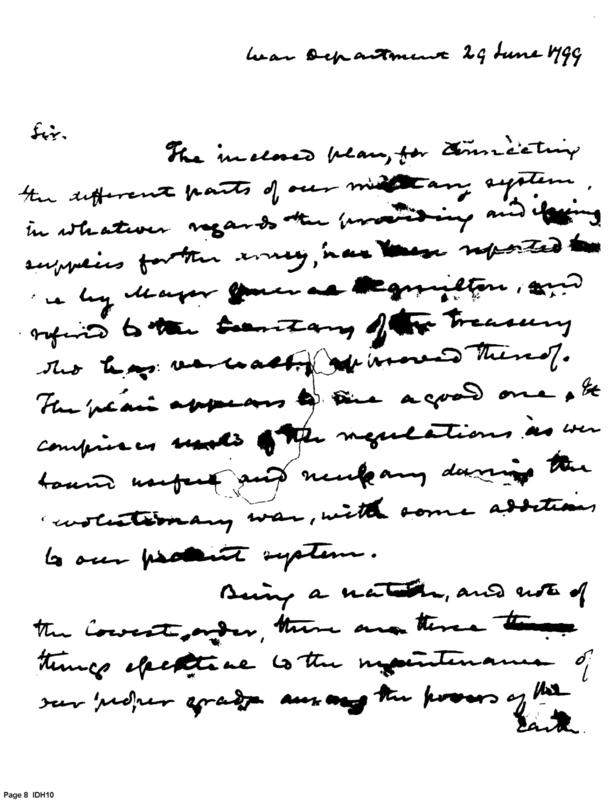 War Department 29 June 1799
Sir.
The inclosed plan, for connecting
the different parts of our military system,
in whatever regards the providing and issuing
supplies for the army, has been reported to
me by Major General Hamilton, and
referred to the Secretary of the Treasury
who has verbally approved thereof.
The plan appears to me a good one, &
comprises such of the regulations as were
found useful and necessary during the
revolutionary war, with some additions
to our present system.
Being a nation, and not of
the lowest order, there are three
things essential to the maintenance of
our proper grade among the powers of the
Earth.
Page 8 IDH10